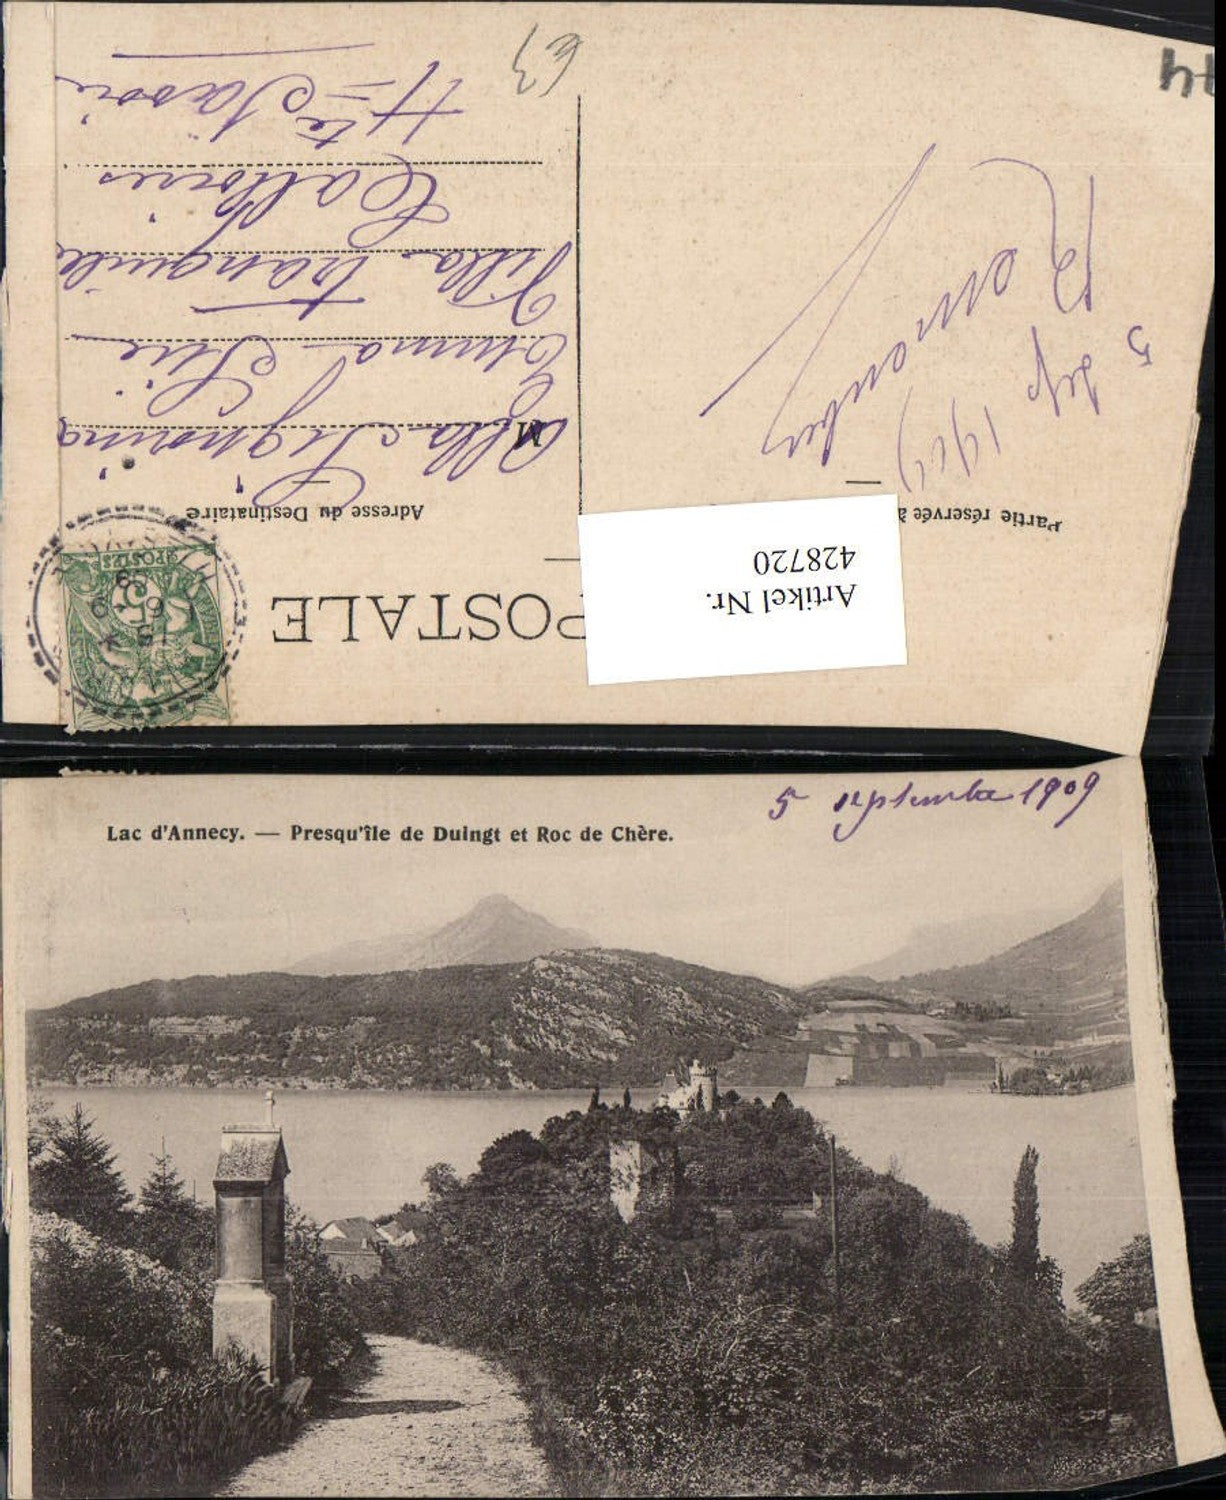 63
74
POSTALE
Artikel Nr.
428720
Partie réservée à
Adresse du Destinataire
5 sep 1909
M
Alla Signorina
Emma
Villa tranquille
Talloires
Hte Savoie
POSTES
5 septembre 1909
Lac d'Annecy. — Presqu'île de Duingt et Roc de Chère.